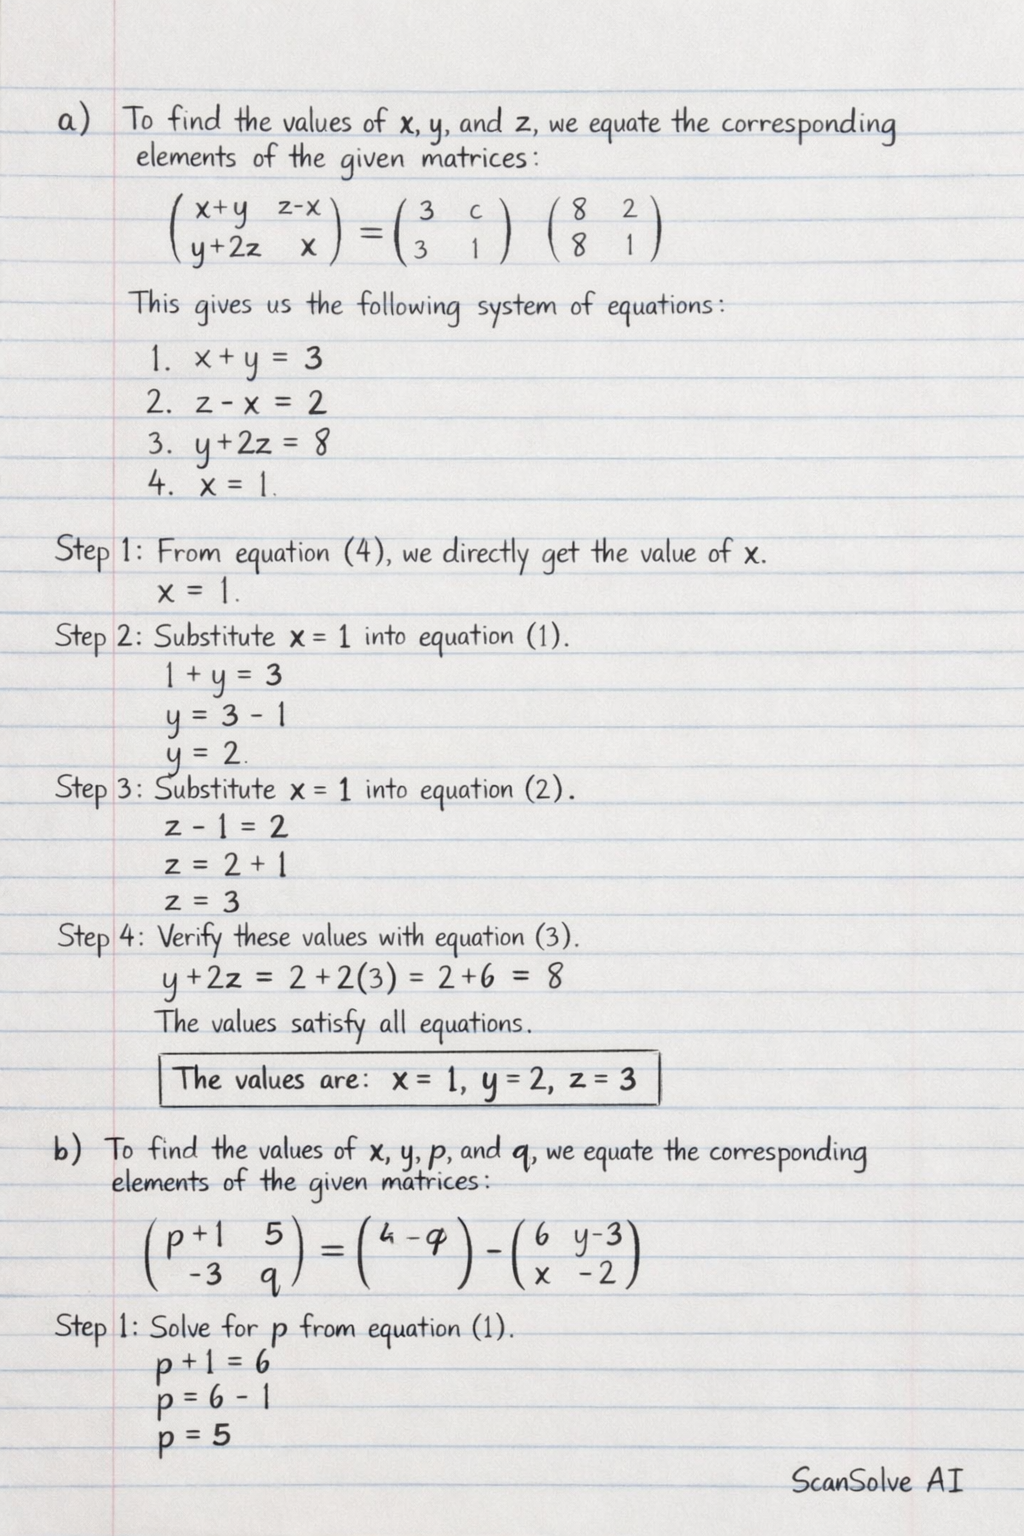 a) To find the values of x, y, and z, we equate the corresponding
elements of the given matrices:
x+y z-x = 3 c 8 2
y+2z x 3 1 8 1
This gives us the following system of equations:
1. x+y = 3
2. z-x = 2
3. y+2z = 8
4. x = 1.
Step 1: From equation (4), we directly get the value of x.
x = 1.
Step 2: Substitute x = 1 into equation (1).
1 + y = 3
y = 3 - 1
y = 2.
Step 3: Substitute x = 1 into equation (2).
z - 1 = 2
z = 2 + 1
z = 3
Step 4: Verify these values with equation (3).
y+2z = 2+2(3) = 2+6 = 8
The values satisfy all equations.
The values are: x = 1, y = 2, z = 3
b) To find the values of x, y, p, and q, we equate the corresponding
elements of the given matrices:
p+1 5 = - 6 y-3
-3 q x -2
Step 1: Solve for p from equation (1).
p+1 = 6
p = 6 - 1
p = 5
ScanSolve AI